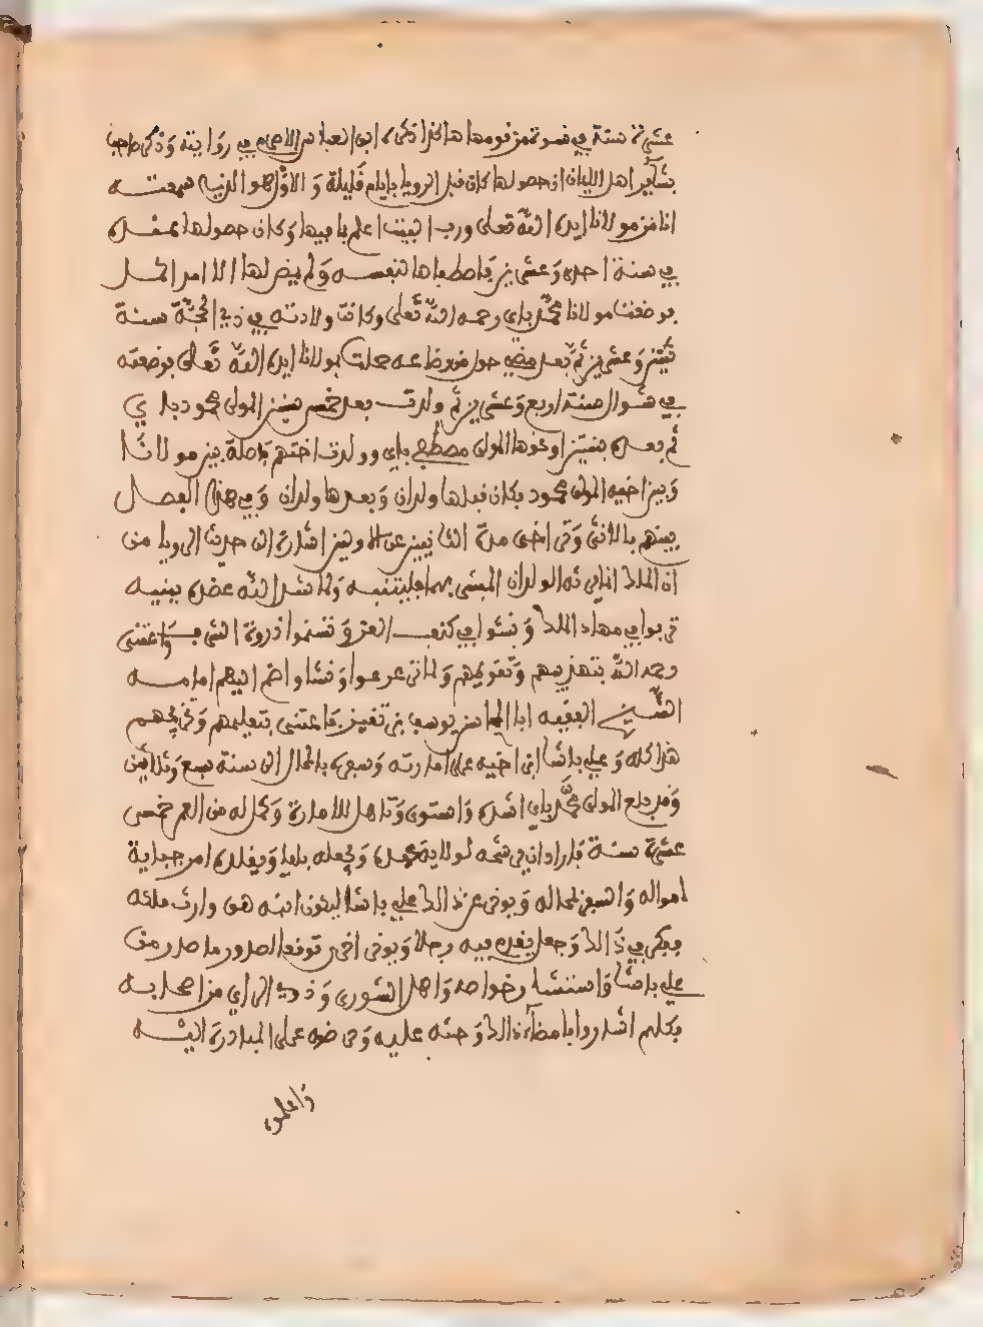 عشرة سنة في نسوة من قومها هاكذا ذكره ابو العباس الاصرم في روايته وذكر صاحب
بشاير اهل الايمان ان حصولها كان قبل الرويا بايام قليلة والاول هو الذي سمعته
انا من مولانا ايده الله تعلى ورب البيت اعلم بما فيها وكان حصولها عنده
في سنة احدى وعشرين فاصطفاها لنفسه ولم يفض لها الا امد الحمل
فوضعت مولانا محمد باي رحمه الله تعلى وكانت ولادته في ذي الحجة سنة
ثنتين وعشرين ثم بعد مضي حول من رضاعه حملت بمولانا ايده الله تعلى فوضعته
في شوال سنة اربع وعشرين ثم ولدت بعد خمس سنين المولى محمود باي
ثم بعده بسنتين او نحوها المولى مصطفى باي وولدت اختهم فاصلة بين مولانا
وبين اخيه المولى محمود فكان قبلها ولدان وبعدها ولدان وفي هذا الفصل
بينهم بالانثى وتراخي مدة الثانيين عن الاولين اشارة الى حديث الرويا من
ان الملك انما يرثه الولدان المبشر بهما فليتنبه ولما شد الله عضده ببنيه
تربوا في مهاد الملك ونشوا في كنف العز وتسنموا ذروة الشرف واعتنى
رحمه الله بتهذيبهم وتقويمهم ولما ترعرعوا ونشاوا ضم اليهم امامه
الشيخ الفقيه ابا المحاسن يوسف برتقيز فاعتنى بتعليمهم وتخريجهم
هذا كله وعلي باشا ابن اخيه على امارته وسفره بالمحال الى سنة سبع وثلاثين
وقد بلغ المولى محمد باي اشده واستوى وتاهل للامارة وكمل له من العمر خمس
عشرة سنة فاراد ان يرشحه لولاية عهده ويجعله بايا ويقلده امر جباية
امواله والسفر بمحاله ويوخر عن ذالك علي باشا ليكون ابنه هو وارث ملكه
ففكر في ذالك وجعل يقدم فيه رجلا ويوخر اخرى توقعا لصدور ما صدر من
علي باشا واستشار خواصه واهل الشورى وذوي الراي من اصحابه
فكلهم اشاروا بامضاء ذالك وحثه عليه وحرضه على المبادرة اليه
واعلموه